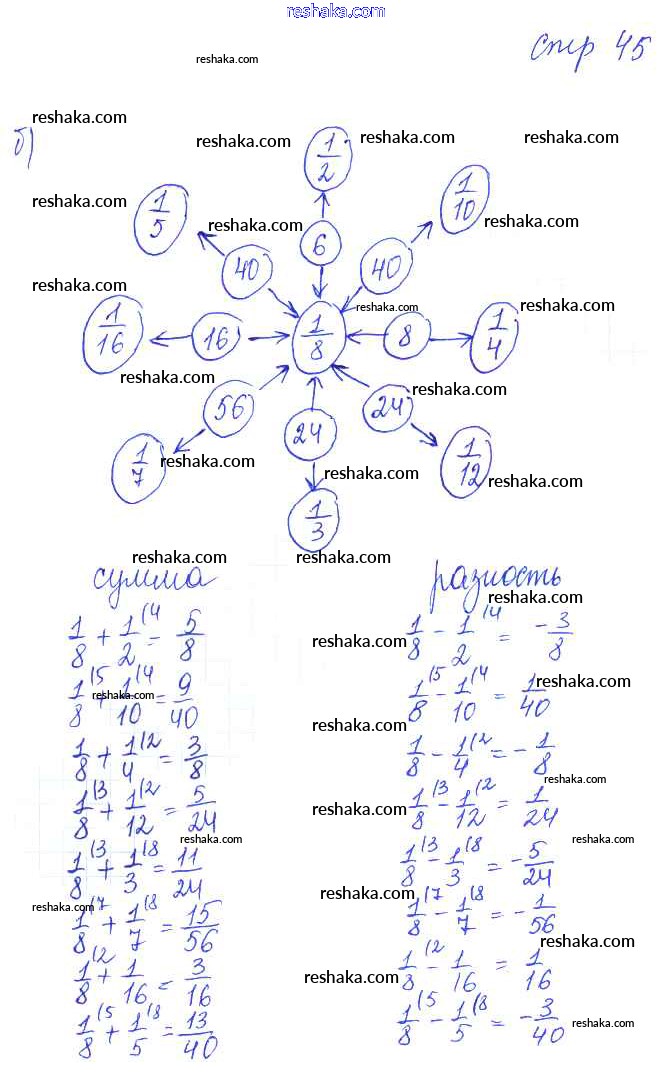 reshaka.com
стр 45
reshaka.com
reshaka.com
б)
reshaka.com reshaka.com reshaka.com
1/2
reshaka.com
1/5 1/10
reshaka.com reshaka.com
6
40 40
reshaka.com
reshaka.com reshaka.com
1/16 16 1/8 8 1/4
reshaka.com reshaka.com
56 24 24
1/7 reshaka.com reshaka.com 1/12 reshaka.com
1/3
reshaka.com reshaka.com
сумма разность
reshaka.com
1/8 + 1/2 (4 = 5/8 reshaka.com 1/8 - 1/2 (4 = -3/8
1/8 (5 + 1/10 (4 = 9/40 1/8 (5 - 1/10 (4 = 1/40
reshaka.com reshaka.com
reshaka.com
1/8 + 1/4 (2 = 3/8 1/8 - 1/4 (2 = -1/8
reshaka.com
1/8 (3 + 1/12 (2 = 5/24 reshaka.com 1/8 (3 - 1/12 (2 = 1/24
reshaka.com reshaka.com
1/8 (3 + 1/3 (8 = 11/24 1/8 (3 - 1/3 (8 = -5/24
reshaka.com reshaka.com reshaka.com
1/8 (7 + 1/7 (8 = 15/56 1/8 (7 - 1/7 (8 = -1/56
reshaka.com
1/8 (2 + 1/16 = 3/16 reshaka.com 1/8 (2 - 1/16 = 1/16
1/8 (5 + 1/5 (8 = 13/40 1/8 (5 - 1/5 (8 = -3/40
reshaka.com